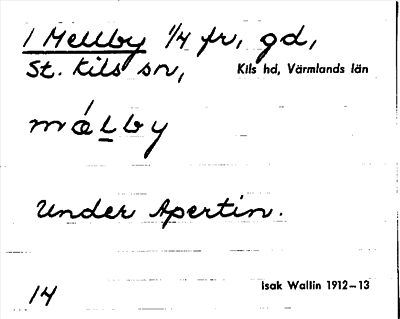 1 Mellby 1/4 fr, gd,
St. Kils sn, Kils hd, Värmlands län
málby
Under Apertin.
14 Isak Wallin 1912–13